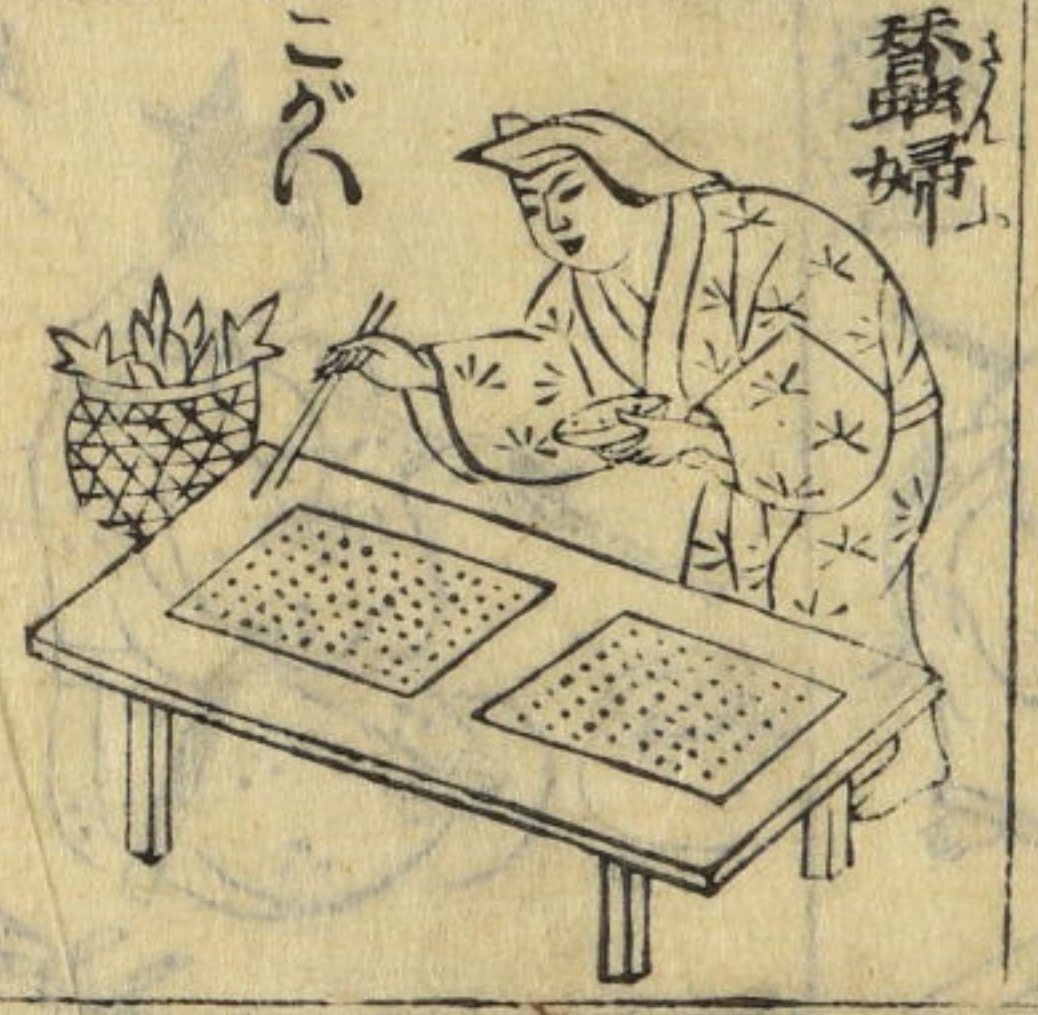 蠶婦
さんふ
こがい